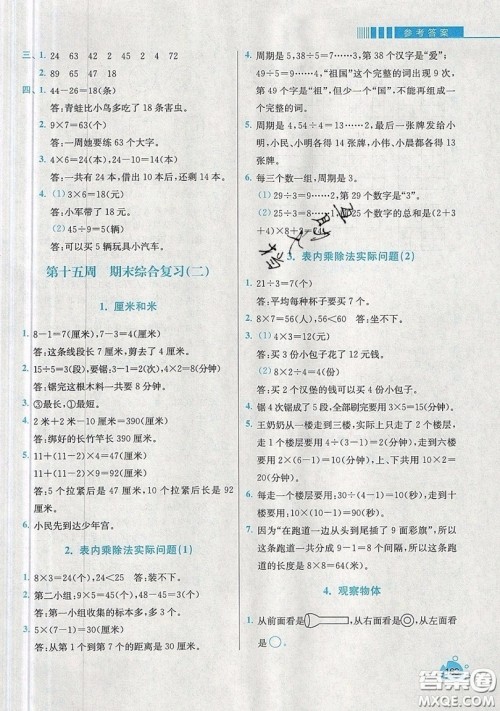 参考答案
三、1. 24 63 24 32 42 72
2. 89 65 47 18
四、1. 44-26=18(条)
答:青蛙比小鸟多吃了 18 条害虫。
2. 9×7=63(个)
答:一周她要练 63 个大字。
3. 4×6=24(本),24-10=14(本)
答:一共借出 24 本,还回 10 本后,还剩 14 本。
4. (1) 3×6=18(元)
答:小军带了 18 元。
(2)
答:可以买 5 辆玩具小汽车。
第十五周 期末综合复习(二)
1. 厘米和米
1. 8-1=7(厘米),7-3=4(厘米)
答:这条线段长 7 厘米,剪去了 4 厘米。
2. 15÷5=3(段),要锯:3-1=2(次),4×2=8(分钟)
答:锯完这根木料一共要 8 分钟。
3. ③最长,①最短。
4. 2 米+2 米-10 厘米=390(厘米)
答:绑好后的长竹竿长 390 厘米。
5. 11+(11-2)×4=47(厘米)
11+(11-2)×9=92(厘米)
答:5 个拉紧后是 47 厘米,10 个拉紧后长是 92 厘米。
6. 小民先到达少年宫。
2. 表内乘除法实际问题(1)
1. 8×3=24(个),24<25 答:装不下。
2. 第二小组:9×5=45(个),45<48
答:第一小组收集的标本多,多 3 个。
3. 5×(7-1)=30(米)
答:从第 1 个到第 7 个的距离是 30 米。
4. 周期是 5,38÷5=7……3,第 38 个汉字是“爱”;
49÷5=9……4,“祖国”这个完整的词出现 9 次,第 49 个字是“祖”,但不完整,不能再组成一个完整的词。
5. 周期是 4,54÷4=13……2,最后一张牌发给小明,小民、小明都有 14 张牌,小伟、小华都有 13 张牌。
6. 每三个数一组,
(1) 29÷3=9……2,第 29 个数是“3”。
(2) 25÷3=8……1,前 25 个数字的总和是(2+3+4)×8+2=74。
3. 表内乘除法实际问题(2)
1. 21÷3=7(元)
答:平均每种杯子要买 7 元。
2. 8×7=56(人),56<60 答:坐不下。
3. (1) 4×3=12(元)
答:买 3 个小包子花了 12 元钱。
(2)
答:买 2 个汉堡的钱可以买 6 个小包子。
4. 锯 4 次锯成了 5 段,全部刷完要 3×5=15(分钟)。
5. 王奶奶从一楼走到三楼,实际上只走了 2 个楼层,走 1 个楼层要用 4÷(3-1)=2(分钟),到六楼要走 5 个楼层要用 2×5=10(分钟),上下共用 10×2=20(分钟)。
6. 每走一层要用 30÷(4-1)=10(秒),走到六楼要用 10×(6-1)=50(秒)。
7. 因为“在跑道一边从头到尾插了 9 面彩旗”,所以这条跑道共分成 9-1=8 个间隔,所以这条跑道的总长是 8×8=64(米)。
4. 观察物体
1. 从前面看是,从右面看是,从左面看是。
答案圈
MXQE.COM